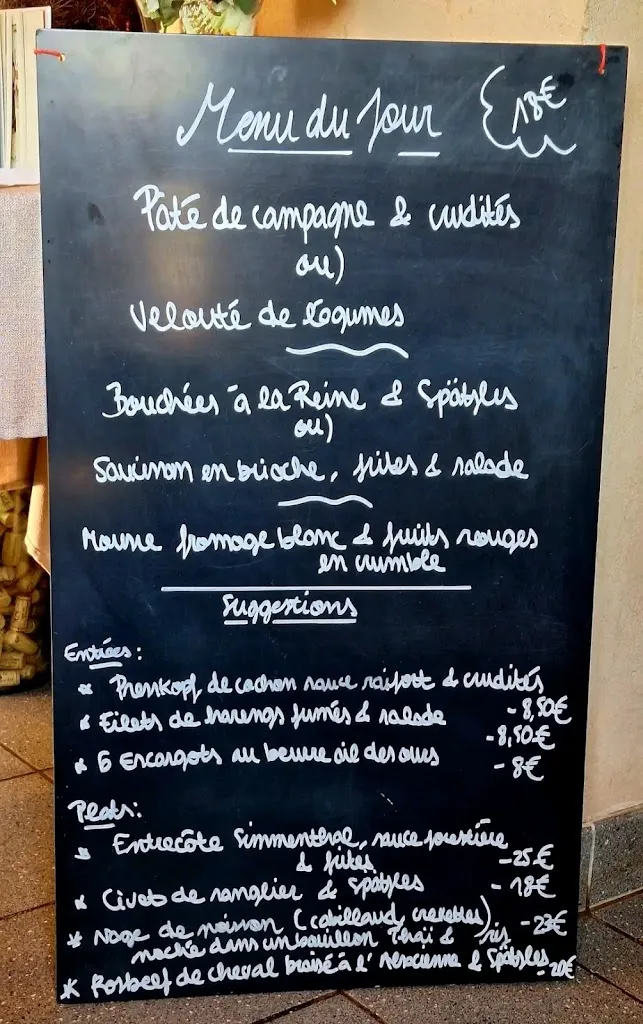 Menu du Jour
18€
Pâté de campagne & crudités
ou)
Velouté de légumes
Bouchées à la Reine & Spätzles
ou)
Saucisson en brioche, frites & salade
Mousse fromage blanc & fruits rouges
en crumble
Suggestions
Entrées:
* Presskopf de cochon sauce raifort & crudités
- 8,50€
* Filets de harengs fumés & salade
- 8,50€
* 6 Escargots au beurre ail des ours
- 8€
Plats:
* Entrecôte Simmenthal, sauce forestière
& frites - 25€
* Civet de sanglier & Spätzles - 18€
* Nage de poisson (cabillaud, crevettes) - 23€
poché dans un bouillon Thaï & riz
* Rosbeef de cheval braisé à l'Alsacienne & Spätzles - 20€